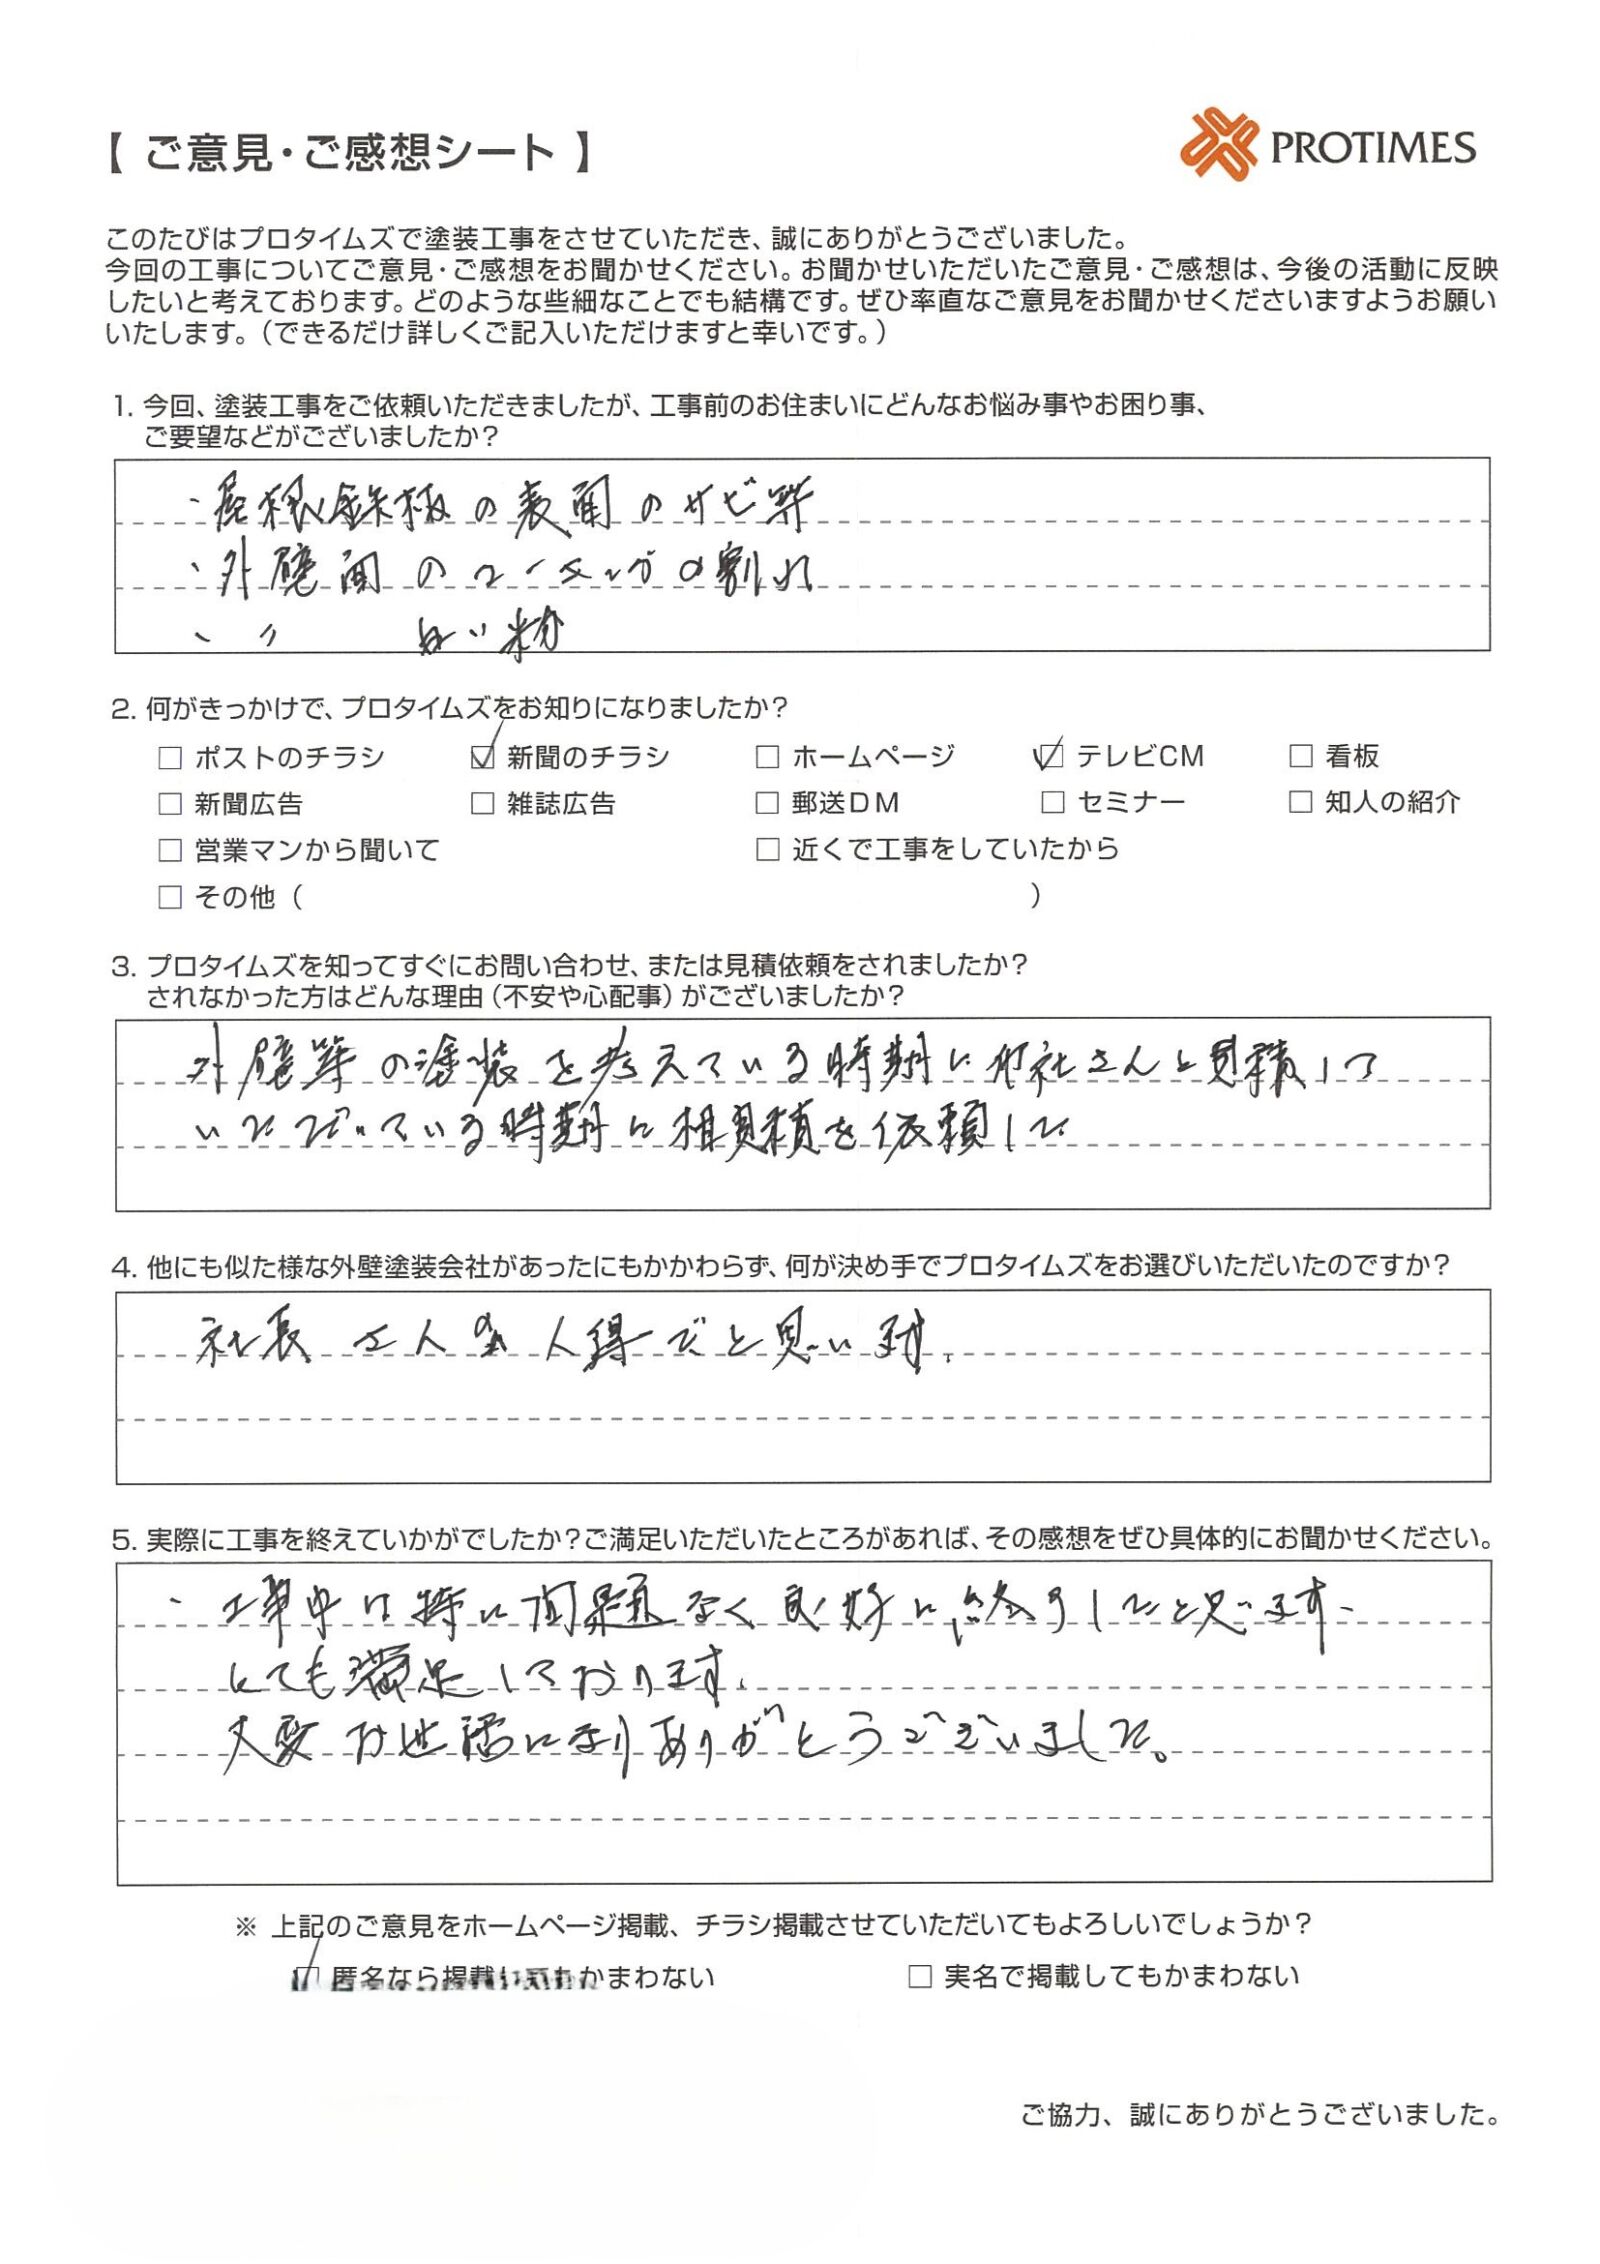 【 ご意見・ご感想シート 】
PROTIMES
このたびはプロタイムズで塗装工事をさせていただき、誠にありがとうございました。
今回の工事についてご意見・ご感想をお聞かせください。お聞かせいただいたご意見・ご感想は、今後の活動に反映
したいと考えております。どのような些細なことでも結構です。ぜひ率直なご意見をお聞かせくださいますようお願い
いたします。（できるだけ詳しくご記入いただけますと幸いです。）
1. 今回、塗装工事をご依頼いただきましたが、工事前のお住まいにどんなお悩み事やお困り事、
ご要望などがございましたか？
・屋根鉄板の表面のサビ等
・外壁面のコーキングの割れ
・〃 白い粉
2. 何がきっかけで、プロタイムズをお知りになりましたか？
□ ポストのチラシ ☑ 新聞のチラシ □ ホームページ ☑ テレビCM □ 看板
□ 新聞広告 □ 雑誌広告 □ 郵送DM □ セミナー □ 知人の紹介
□ 営業マンから聞いて □ 近くで工事をしていたから
□ その他（ ）
3. プロタイムズを知ってすぐにお問い合わせ、または見積依頼をされましたか？
されなかった方はどんな理由（不安や心配事）がございましたか？
外壁等の塗装を考えている時期に他社さんと見積して
いただいている時期に相見積を依頼した
4. 他にも似た様な外壁塗装会社があったにもかかわらず、何が決め手でプロタイムズをお選びいただいたのですか？
社長さんの人得だと思います.
5. 実際に工事を終えていかがでしたか？ご満足いただいたところがあれば、その感想をぜひ具体的にお聞かせください。
・工事中は特に問題なく良好に終了したと思います.
とても満足しております.
大変お世話になりありがとうございました。
※ 上記のご意見をホームページ掲載、チラシ掲載させていただいてもよろしいでしょうか？
☑ 匿名なら掲載してもかまわない □ 実名で掲載してもかまわない
ご協力、誠にありがとうございました。